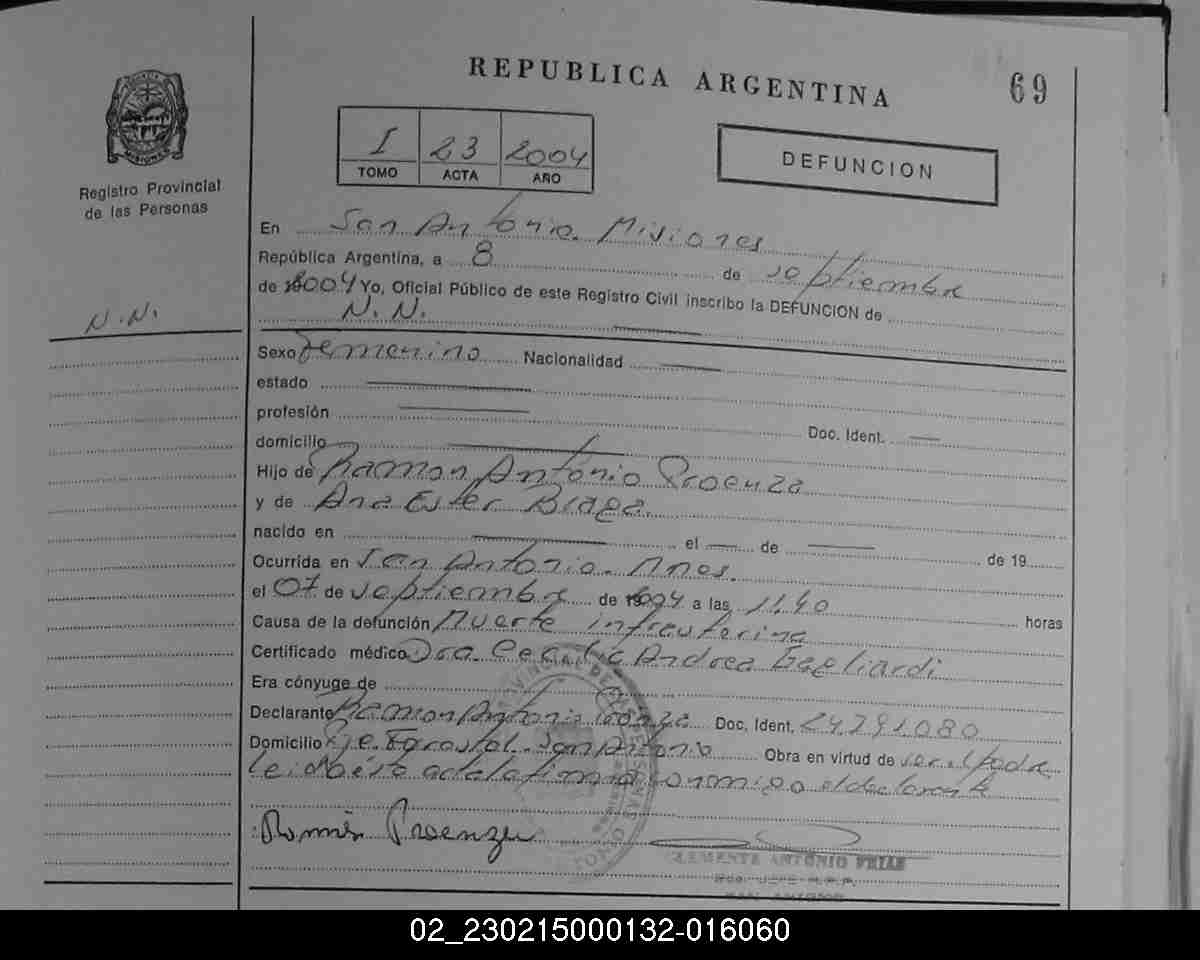 REPUBLICA ARGENTINA
69
I 23 2004
TOMO ACTA AÑO
DEFUNCION
MISIONES
Registro Provincial
de las Personas
N.N.
En San Antonio. Misiones
República Argentina, a 8 de septiembre
de 2004 Yo, Oficial Público de este Registro Civil inscribo la DEFUNCION de
N. N.
Sexo Femenino Nacionalidad
estado
profesión
Doc. Ident.
domicilio
Hijo de Ramon Antonio Proenza
y de Ana Ester Braga.
nacido en el de de 19
Ocurrida en San Antonio. Mnes.
el 07 de septiembre de 2004 a las 11.40 horas
Causa de la defunción Muerte intrauterina
Certificado médico Dra. Cecilia Andrea Gagliardi
Era cónyuge de
Declarante Ramon Antonio Proenza Doc. Ident. 24.791.080
Domicilio Eje. Forestal. San Antonio Obra en virtud de ser el padre
leida ésta acta la firma conmigo el declarante
Ramón Proenza
CLEMENTE ANTONIO FRIAS
SAN ANTONIO
02_230215000132-016060